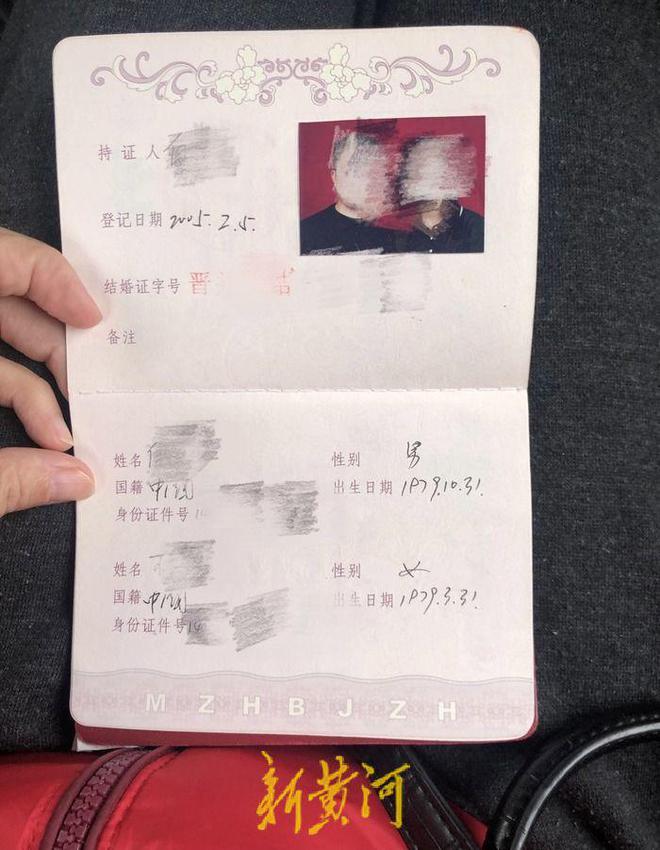 持证人
登记日期 2005.2.5.
结婚证字号 晋 结
备注
姓名 性别 男
国籍 中国 出生日期 1979.10.31.
身份证件号 14
姓名 性别 女
国籍 中国 出生日期 1979.3.31.
身份证件号 14
MZHBJZH
新黄河